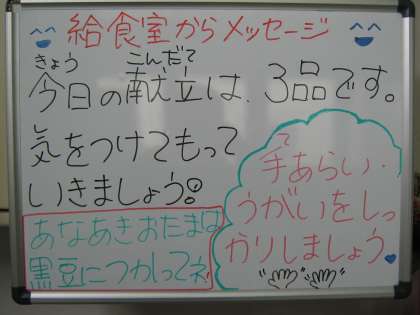 給食室からメッセージ
きょう こんだて
今日の献立は、3品です。
気をつけてもって
いきましょう。
あなあきおたまは
黒豆につかってネ
て
手あらい・
うがいをしっ
かりしましょう。